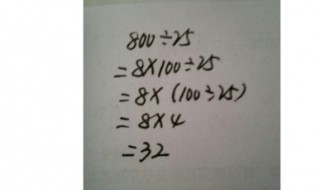 800÷25
=8×100÷25
=8×(100÷25)
=8×4
=32